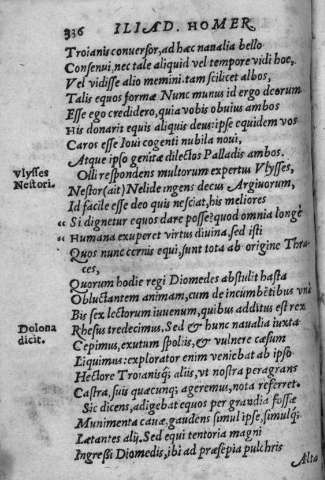 336 ILIAD. HOMER.
Troianis conuersor, ad hæc naualia bello
Consenui, nec tale aliquid vel tempore vidi hoc,
Vel vidisse alio memini. tam scilicet albos,
Talis equos formæ Nunc munus id ergo deorum
Esse ego credidero, quia vobis obuius ambos
His donarit equis aliquis deus: ipse equidem vos
Caros esse Ioui cogenti nubila noui,
Atque ipso genitæ dilectos Palladis ambos.
Olli respondens multorum expertus Vlysses,
Vlysses
Nestori.
Nestor (ait) Nelide ingens decus Argiuorum,
Id facile esse deo quis nesciat, his meliores
“ Si dignetur equos dare posse? quod omnia longè
“ Humana exuperet virtus diuina. sed isti
Quos nunc cernis equi, sunt tota ab origine Thra-
ces,
Quorum hodie regi Diomedes abstulit hasta
Obluctantem animam, cum de incumbētibus vnà
Bis sex lectorum iuuenum, quibus additus est rex
Dolona
dicit.
Rhesus tredecimus. Sed & hunc naualia iuxta
Cepimus, exutum spoliis, & vulnere cæsum
Liquimus: explorator enim veniebat ab ipso
Hectore Troianisq; aliis, vt nostra peragrans
Castra, suis quæcunq; ageremus, nota referret.
Sic dicens, adigebat equos per grandia fossæ
Munimenta cauæ, gaudens simul ipse, simulq;
Lætantes alij. Sed equi tentoria magni
Ingressi Diomedis, ibi ad præsepia pulchris
Alta